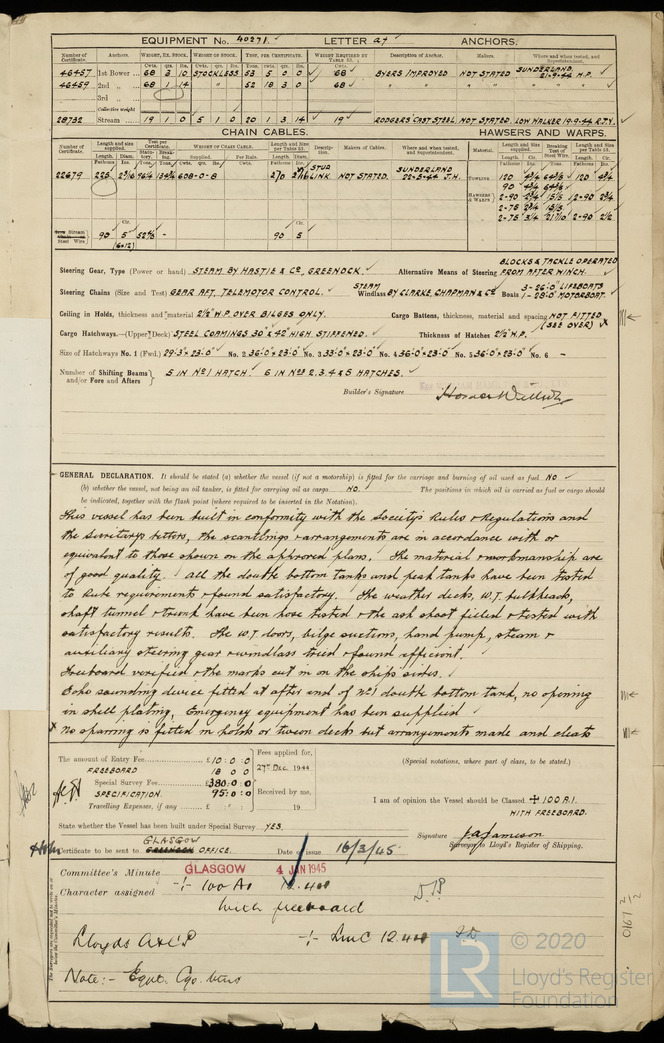 EQUIPMENT No. 40271. LETTER at ANCHORS.
Number of Certificate. Anchors. WEIGHT, EX. STOCK. WEIGHT OF STOCK. TEST, PER CERTIFICATE. WEIGHT REQUIRED BY TABLE 53. Description of Anchor. Makers. Where and when tested, and Superintendent.
Cwts. qrs. lbs. Cwts. qrs. lbs. Tons. cwts. qrs. lbs. Cwts.
46457 1st Bower 68 3 10 STOCKLESS 53 5 0 0 68 BYERS IMPROVED NOT STATED SUNDERLAND. 21-9-44 H.P.
46459 2nd „ 68 1 14 " 52 18 3 0 68 " " " " "
3rd „
Collective weight
28732 Stream 19 1 0 5 1 0 20 1 3 14 19 RODGERS CAST STEEL. NOT STATED. LOW WALKER 19-9-44 R.T.Y.
CHAIN CABLES. HAWSERS AND WARPS.
Number of Certificate. Length and size supplied. Test per Certificate. WEIGHT OF CHAIN CABLE. Length and size per Table 53. Description. Makers of Cables. Where and when tested, and Superintendent. Material. Length and size supplied. Breaking Test of Steel Wire. Length and size per Table 53.
Fathoms Diam. Statutory. Breaking. Supplied. Per Rule. Length. Diam.
22679 225 2 3/16 608-0-8 270 2 3/16 STUD LINK NOT STATED. SUNDERLAND 22-5-44 J.H.
TOWLING 120 4 3/4 120 4 3/4
90 4 3/4
HAWSERS & WARPS 2-90 2 3/4 15/3 2-90 2 3/4
2-75 2 3/4 15/3
2-75 3 1/4 2-90 2 1/2
Stream Steel Wire 90 5 52 - 90 5
(6×12)
Steering Gear, Type (Power or hand) STEAM BY HASTIE & Co, GREENOCK. Alternative Means of Steering BLOCKS & TACKLE OPERATED FROM AFTER WINCH.
Steering Chains (Size and Test) GEAR AFT. TELEMOTOR CONTROL. STEAM Windlass BY CLARKE, CHAPMAN & Co Boats 3-26'-0" LIFEBOATS 1-28'-0" MOTORBOAT.
Ceiling in Holds, thickness and material 2½" W.P. OVER BILGES ONLY. Cargo Battens, thickness, material and spacing NOT FITTED (SEE OVER) x
Cargo Hatchways.—(Upper Deck) STEEL COAMINGS 30" & 42" HIGH STIFFENED. Thickness of Hatches 2½" W.P.
Size of Hatchways No. 1 (Fwd.) 29'-3" × 23'-0" No. 2 36'-0" × 23'-0" No. 3 33'-0" × 23'-0" No. 4 36'-0" × 23'-0" No. 5 36'-0" × 23'-0" No. 6 –
Number of Shifting Beams and/or Fore and Afters 5 IN No 1 HATCH. 6 IN Nos 2.3.4 & 5 HATCHES.
Builder's Signature
GENERAL DECLARATION. It should be stated (a) whether the vessel (if not a motorship) is fitted for the carriage and burning of oil used as fuel NO
(b) whether the vessel, not being an oil tanker, is fitted for carrying oil as cargo NO. The positions in which oil is carried as fuel or cargo should
be indicated, together with the flash point (where required to be inserted in the Notation).
This vessel has been built in conformity with the Society's Rules & Regulations and
the Secretary's letters, the scantlings & arrangements are in accordance with or
equivalent to those shown on the approved plans. The material & workmanship are
of good quality. All the double bottom tanks and peak tanks have been tested
to Rule requirements & found satisfactory. The weather decks, W.T. bulkheads,
shaft tunnel & trunk have been hose tested & the ash shoot filled & tested with
satisfactory results. The W.T. doors, bilge suctions, hand pump, steam &
auxiliary steering gear & windlass tried & found efficient.
Freeboard verified & the marks cut in on the ships sides.
Echo sounding device fitted at after end of No 1 double bottom tank, no opening
in shell plating. Emergency equipment has been supplied
x No sparring is fitted in holds or tween decks but arrangements made and cleats
The amount of Entry Fee £ 10 : 0 : 0 Fees applied for,
FREEBOARD 18 0 0 27th Dec. 1944
Special Survey Fee £380 : 0 : 0
SPECIFICATION. 95 : 0 : 0 Received by me,
Travelling Expenses, if any £ : : 19
(Special notations, where part of class, to be stated.)
I am of opinion the Vessel should be Classed ✠ 100 A.1.
WITH FREEBOARD.
State whether the Vessel has been built under Special Survey YES.
Signature J.A. Jameson
Surveyor to Lloyd's Register of Shipping.
GLASGOW
Certificate to be sent to GREENOCK OFFICE. Date of issue 16/3/45
Committee's Minute GLASGOW 4 JAN 1945
Character assigned -:- 100 A1 12.44
with freeboard
Lloyds A&CP -:- LMC 12.44
Note:- Eqpt. Cgo. btns
© 2020
LR
Lloyd's Register
Foundation